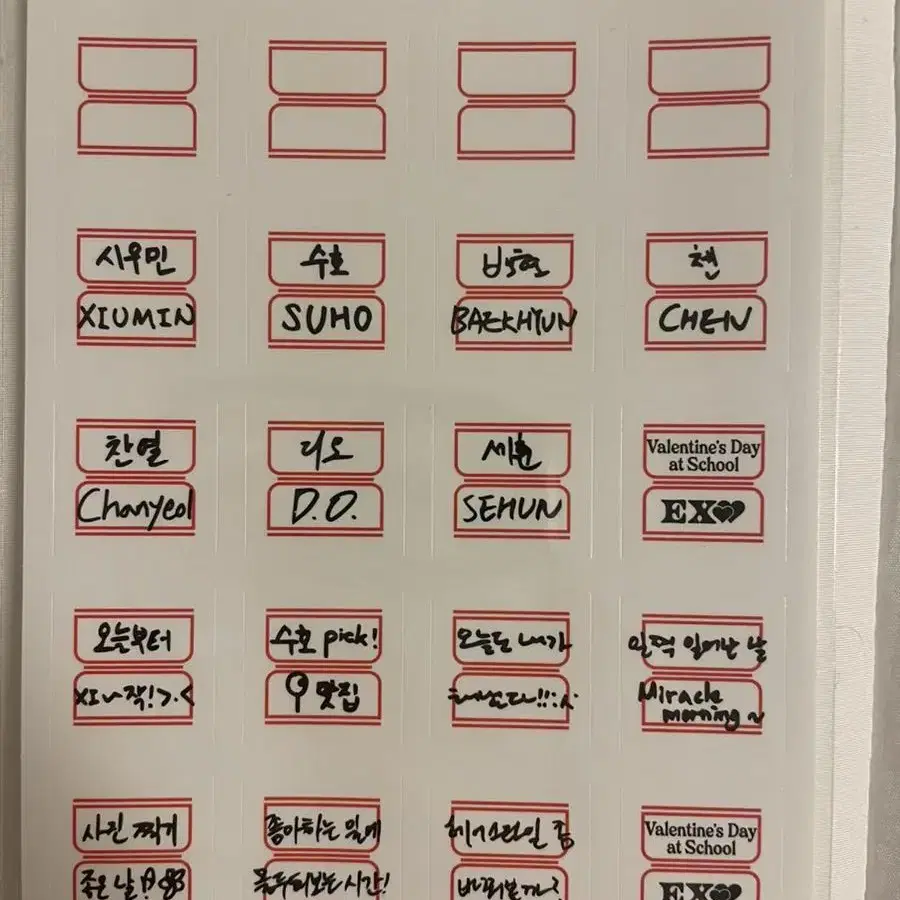 시우민 수호 백현 첸
XIUMIN SUHO BAEKHYUN CHEN
찬열 디오 세훈 Valentine's Day
at School
Chanyeol D.O. SEHUN EX
오늘부터 수호 pick! 오늘도 내가 일찍 일어난 날
XIU작!>.< 맛집 해낸다!! Miracle
morning~
사진 찍기 좋아하는 일에 헤어스타일 좀 Valentine's Day
at School
좋은 날! 몰두해보는 시간! 바꿔볼까? EX